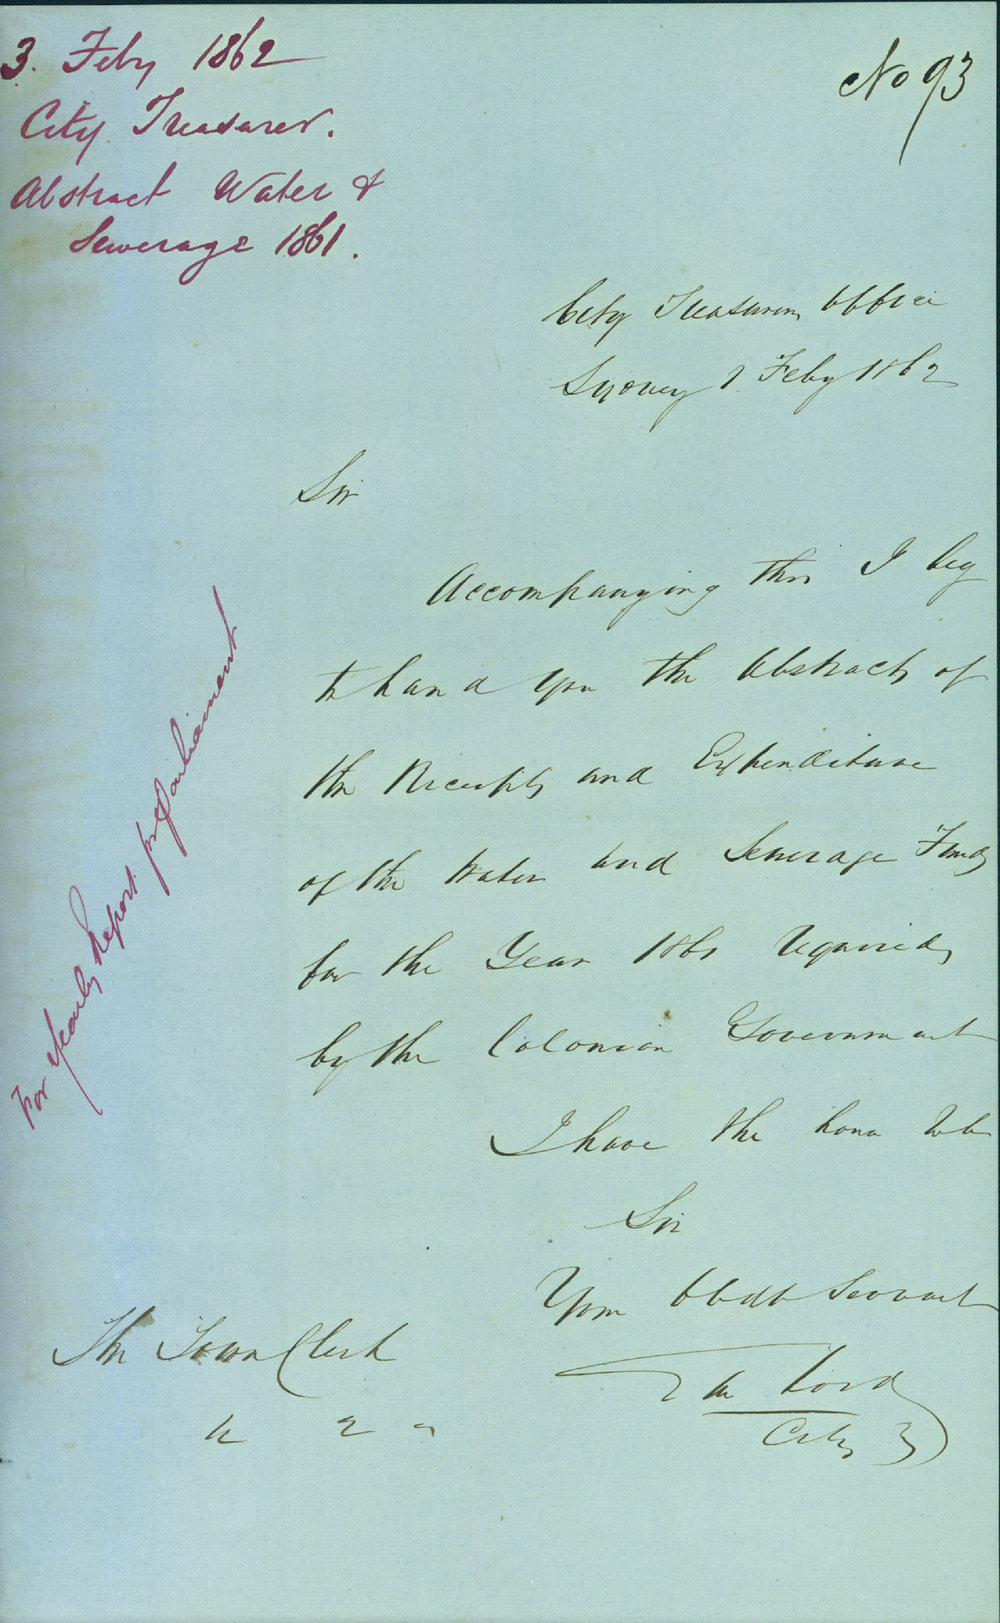 3. Feby 1862
City Treasurer.
Abstract Water &
Sewerage 1861.
No 93
City Treasurers Office
Sydney 1 Feby 1862
Sir
Accompanying this I beg
to hand you the Abstracts of
the Receipts and Expenditure
of the Water and Sewerage Funds
for the Year 1861 required
by the Colonial Government
I have the honor to be
Sir
Your Obedt Servant
Lord
City T
The Town Clerk
For Yearly Report for Parliament